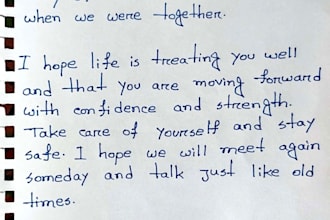 when we were together.
I hope life is treating you well
and that you are moving forward
with confidence and strength.
Take care of yourself and stay
safe. I hope we will meet again
someday and talk just like old
times.